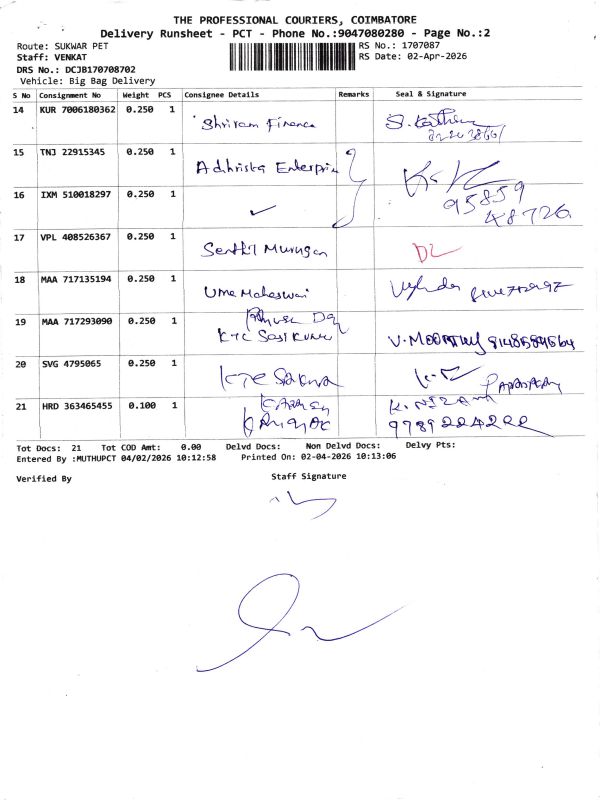 THE PROFESSIONAL COURIERS, COIMBATORE
Delivery Runsheet - PCT - Phone No.:9047080280 - Page No.:2
Route: SUKWAR PET
RS No.: 1707087
Staff: VENKAT
RS Date: 02-Apr-2026
DRS No.: DCJB170708702
Vehicle: Big Bag Delivery
S No Consignment No Weight PCS Consignee Details Remarks Seal & Signature
14 KUR 7006180362 0.250 1 Shriram Finance
15 TNJ 22915345 0.250 1 Adhriska Enterprise
16 IXM 510018297 0.250 1 95859 48726
17 VPL 408526367 0.250 1 Senthil Murugan
18 MAA 717135194 0.250 1 Uma Maheswari
19 MAA 717293090 0.250 1 KTC Sasi Kumar V. MOORTHY
20 SVG 4795065 0.250 1 KTC
21 HRD 363465455 0.100 1 K. NIZAM
Tot Docs: 21 Tot COD Amt: 0.00 Delvd Docs: Non Delvd Docs: Delvy Pts:
Entered By :MUTHUPCT 04/02/2026 10:12:58 Printed On: 02-04-2026 10:13:06
Verified By
Staff Signature